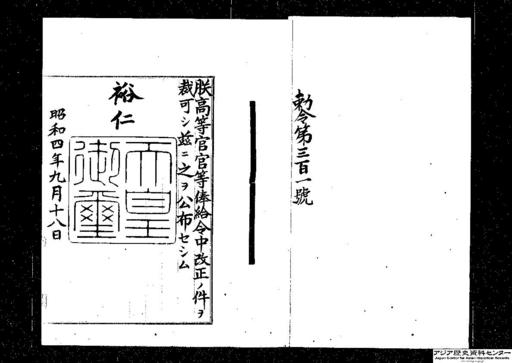 勅令第三百一號
朕高等官官等俸給令中改正ノ件ヲ
裁可シ茲ニ之ヲ公布セシム
裕仁
天皇
御璽
昭和四年九月十八日
アジア歴史資料センター
Japan Center for Asian Historical Records